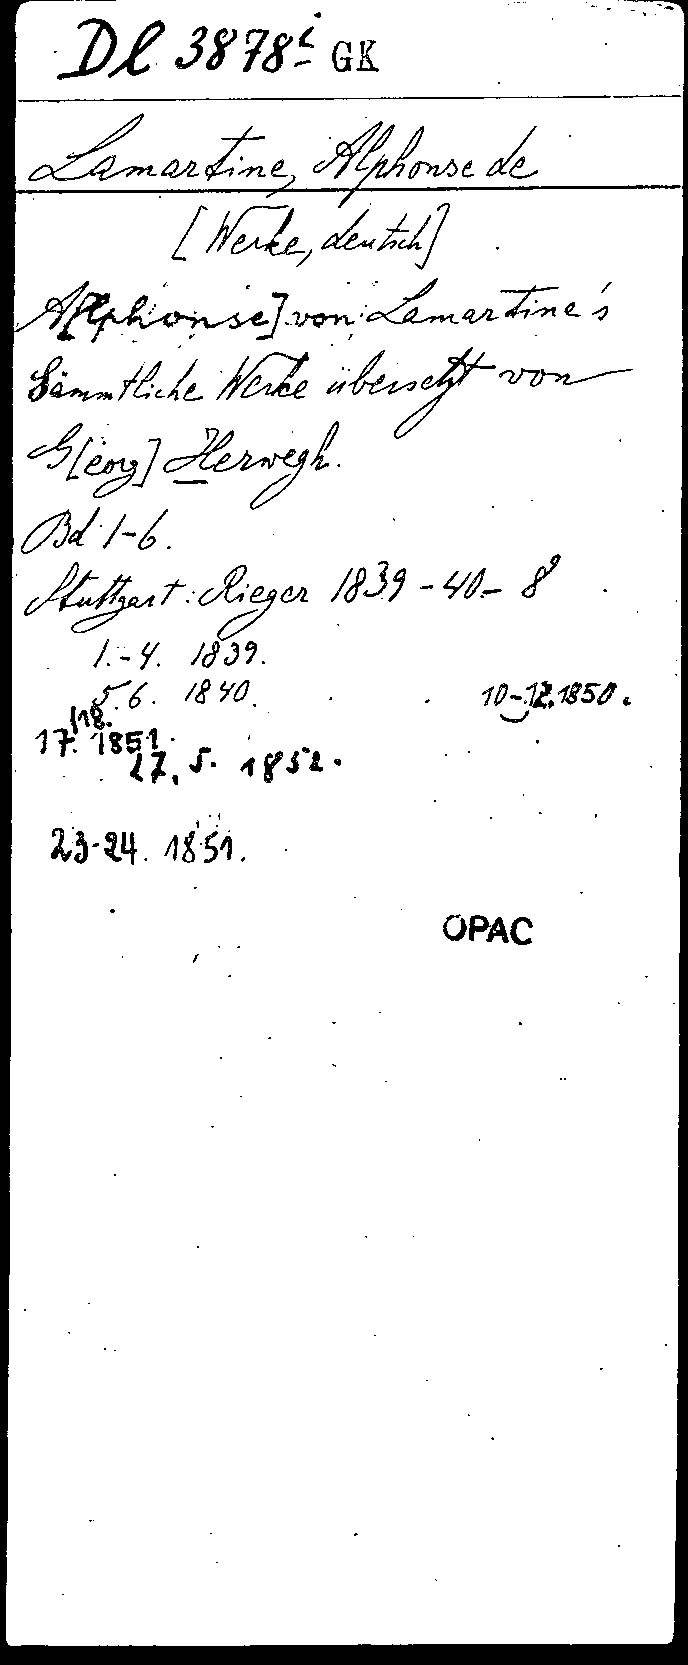 Dl 3878i GK
Lamartine, Alphonse de
[Werke, deutsch]
A[lphonse] von Lamartine's
Sämmtliche Werke übersetzt von
G[eorg] Herwegh.
Bd 1-6.
Stuttgart: Rieger 1839-40. 8°
1.-4. 1839.
5.6. 1840. 10-12.1850.
17./18. 1851.
27. 5. 1852.
23-24. 1851.
OPAC